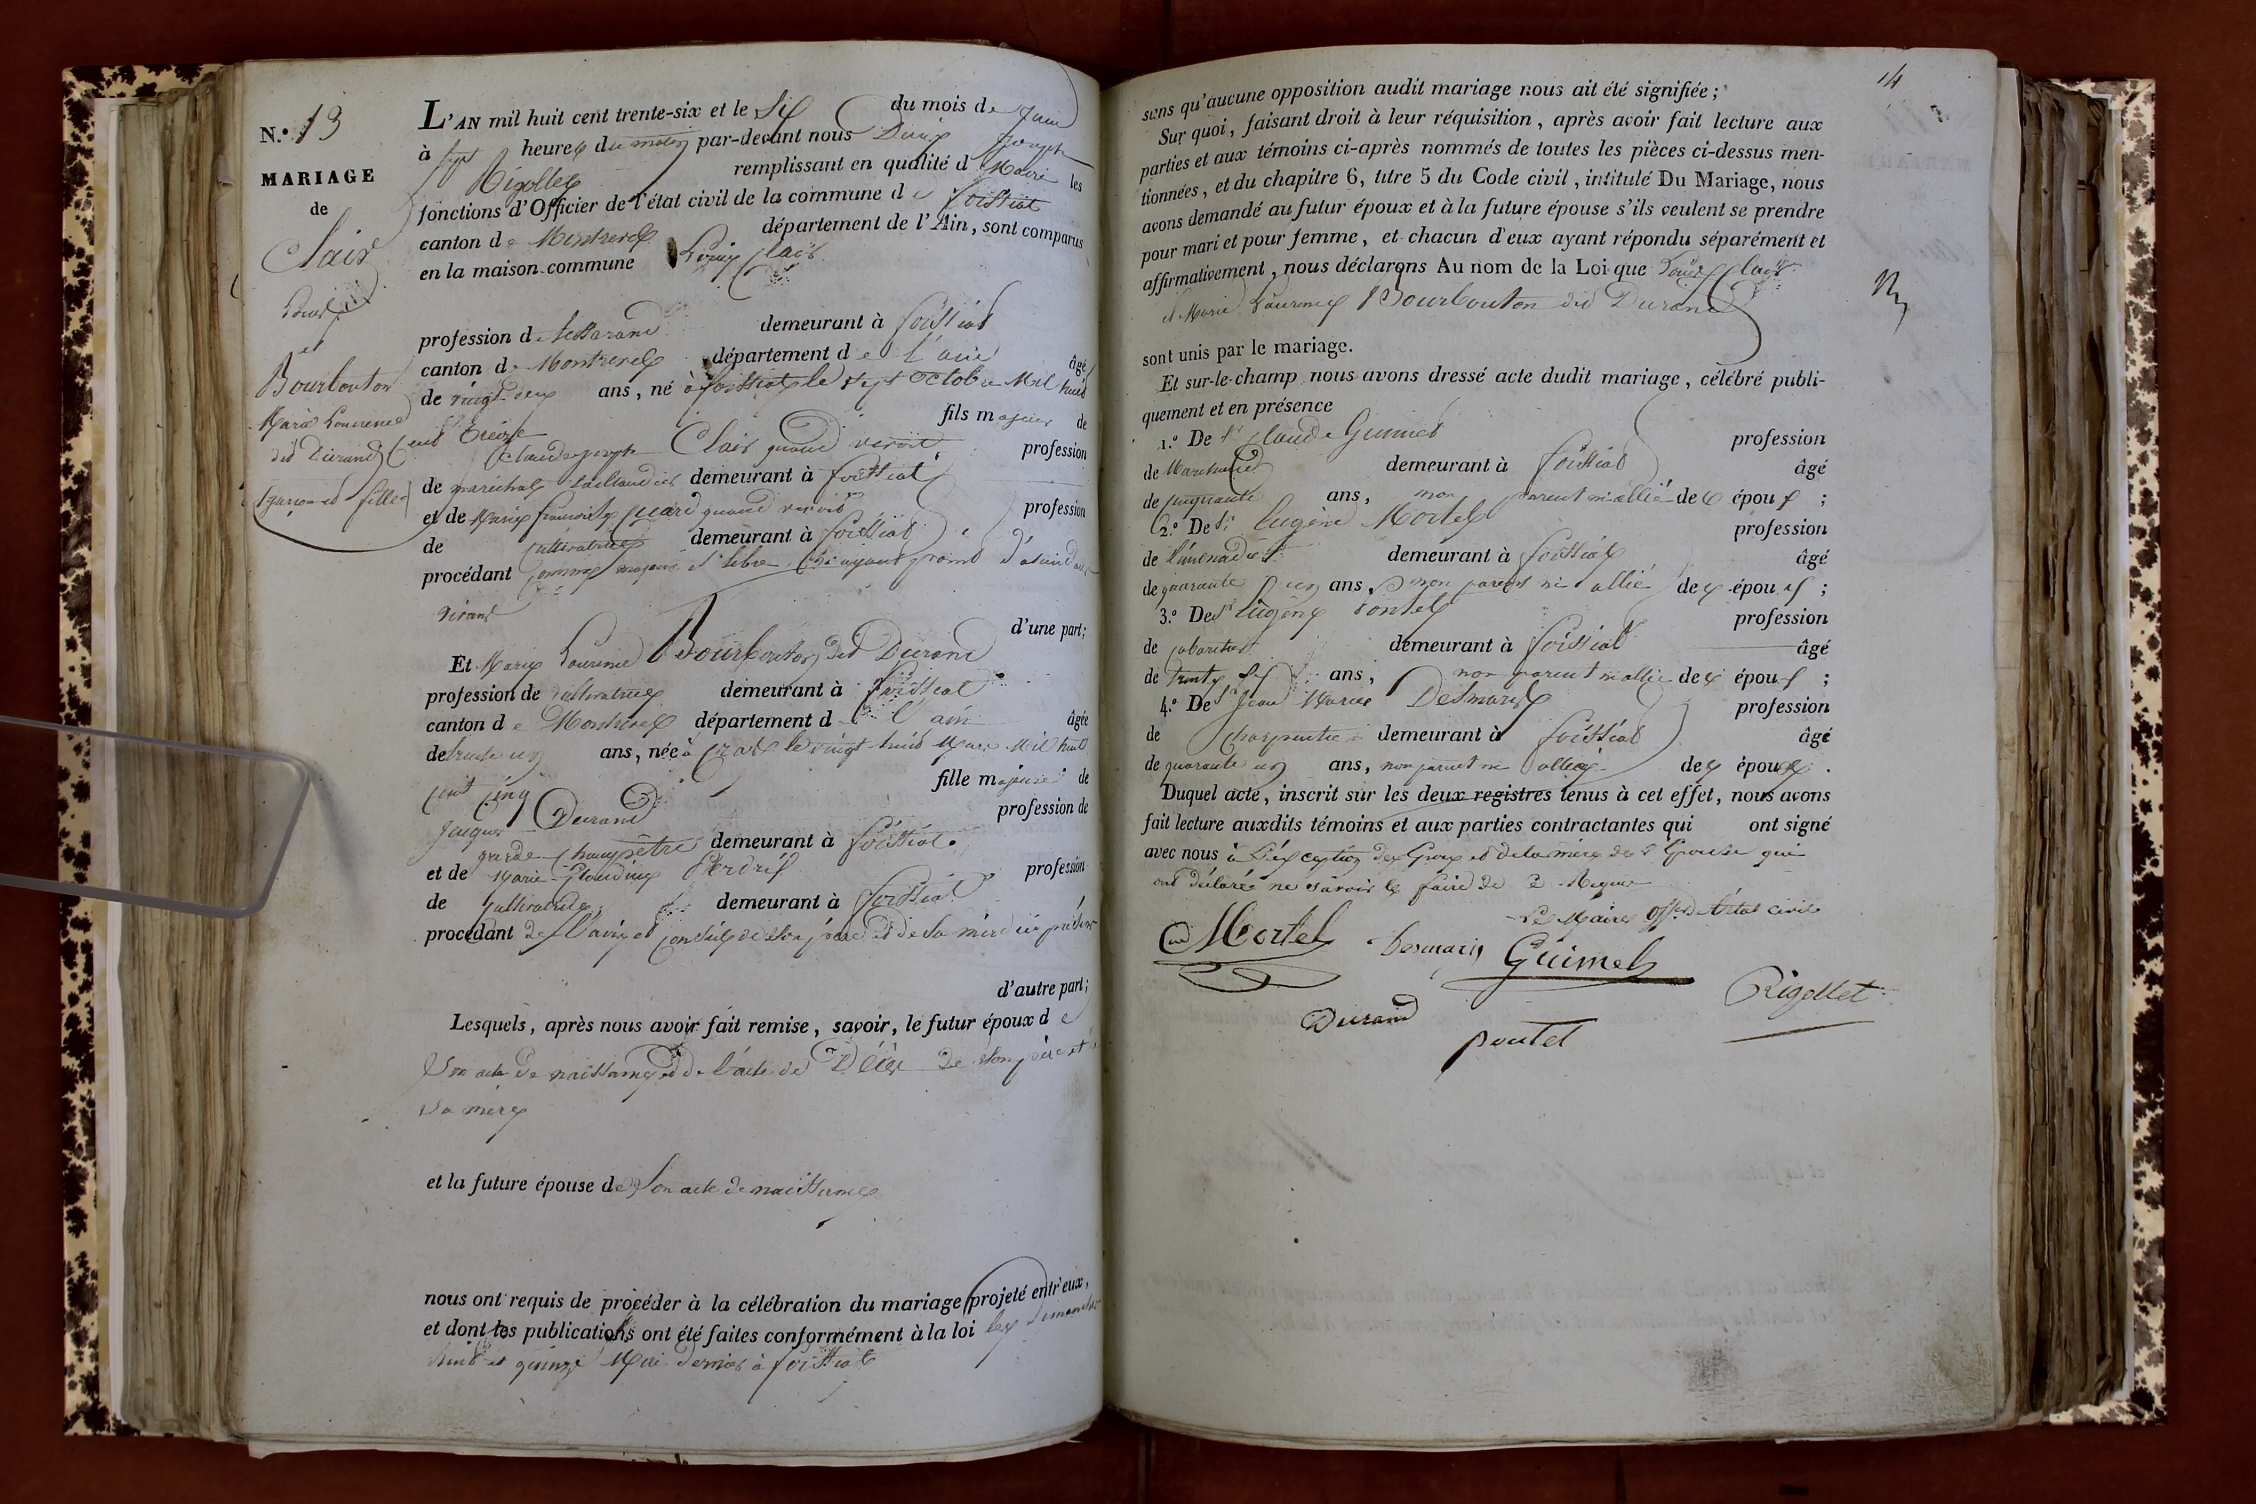 N.º 13
MARIAGE
de
Clair
Louis
et
Bourbouton
Marie Laurence
dit Durand
garçon et fille
L'AN mil huit cent trente-six et le six du mois de Juin
à sept heures du matin par-devant nous Denis Joseph
Rigollet remplissant en qualité de Maire les
fonctions d'Officier de l'état civil de la commune de foissiat
canton de Montrevel département de l'Ain, sont comparus
en la maison commune Louis Clair
profession de tisserand demeurant à foissiat
canton de Montrevel département de l'ain âgé
de vingt deux ans, né à foissiat le sept octobre Mil huit
cent treize fils majeur de
Claude joseph Clair quand vivoit profession
de maréchal taillandier demeurant à foissiat
et de Marie françoise quand vivoit profession
de cultivatrice demeurant à foissiat
procédant comme majeur et libre
vivant
d'une part;
Et Marie Laurence Bourbouton dit Durand
profession de cultivatrice demeurant à foissiat
canton de Montrevel département de l'ain âgée
de trente un ans, née à le vingt huit Mars Mil huit
cent cinq fille majeure de
Jacques Durand profession de
garde champêtre demeurant à foissiat
et de Marie Claudine Perdrix profession
de cultivatrice demeurant à foissiat
procédant de l'avis et conseil de son père et de sa mère ici présens
d'autre part;
Lesquels, après nous avoir fait remise, savoir, le futur époux de
Son acte de naissance et de l'acte de Décès de son père et
sa mère
et la future épouse de Son acte de naissance
nous ont requis de procéder à la célébration du mariage projeté entr'eux,
et dont les publications ont été faites conformément à la loi les dimanches
huit et quinze Mai dernier à foissiat
14
sans qu'aucune opposition audit mariage nous ait été signifiée;
Sur quoi, faisant droit à leur réquisition, après avoir fait lecture aux
parties et aux témoins ci-après nommés de toutes les pièces ci-dessus men-
tionnées, et du chapitre 6, titre 5 du Code civil, intitulé Du Mariage, nous
avons demandé au futur époux et à la future épouse s'ils veulent se prendre
pour mari et pour femme, et chacun d'eux ayant répondu séparément et
affirmativement, nous déclarons Au nom de la Loi que Louis Clair
et Marie Laurence Bourbouton dit Durand
sont unis par le mariage.
Et sur-le-champ nous avons dressé acte dudit mariage, célébré publi-
quement et en présence
1.º De Sr Claude Guimet profession
de Marchand demeurant à foissiat âgé
de cinquante ans, non parent ni allié des époux;
2.º De Sr Eugène Mortel profession
de demeurant à foissiat âgé
de quarante un ans, non parent ni allié des époux;
3.º De Sr Eugène Pontet profession
de cabaretier demeurant à foissiat âgé
de trente six ans, non parent ni allié des époux;
4.º De Sr Jean Marie Desmaris profession
de charpentier demeurant à foissiat âgé
de quarante un ans, non parent ni allié des époux.
Duquel acte, inscrit sur les deux registres tenus à cet effet, nous avons
fait lecture auxdits témoins et aux parties contractantes qui ont signé
avec nous à l'exception des Epoux et de la mère de l'Epouse qui
ont déclaré ne savoir le faire de ce Requis
Le Maire Off. de l'état civil
Mortel Desmaris Guimet
Rigollet
Durand
pontet